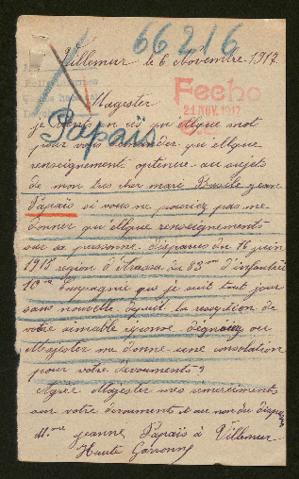 66216
Villemur le 6 Novembre 1917
Fecho
21 NOV. 1917
Magester
Papaïs
je vient en ces quellque mot
pour vous demander quellque
renseignement optenue au sujets
de mon tres cher mare Basile jean
Papaïs si vous ne pouriez pas me
donner quellque renseignements
sur sa personne disparus du 16 juin
1915 region d'Arrass du 83me d'infanterie
10me Compagnie que je suit tout jour
sans nouvelle depuit la reseption de
votre aimable reponse deignez ou
Magester me donne une consolation
pour votre devoument
Agrée Magester mes remerciments
sur votre devoument et au non du disparu
Mme jeanne Papaïs à Villemur
Haute Garonne